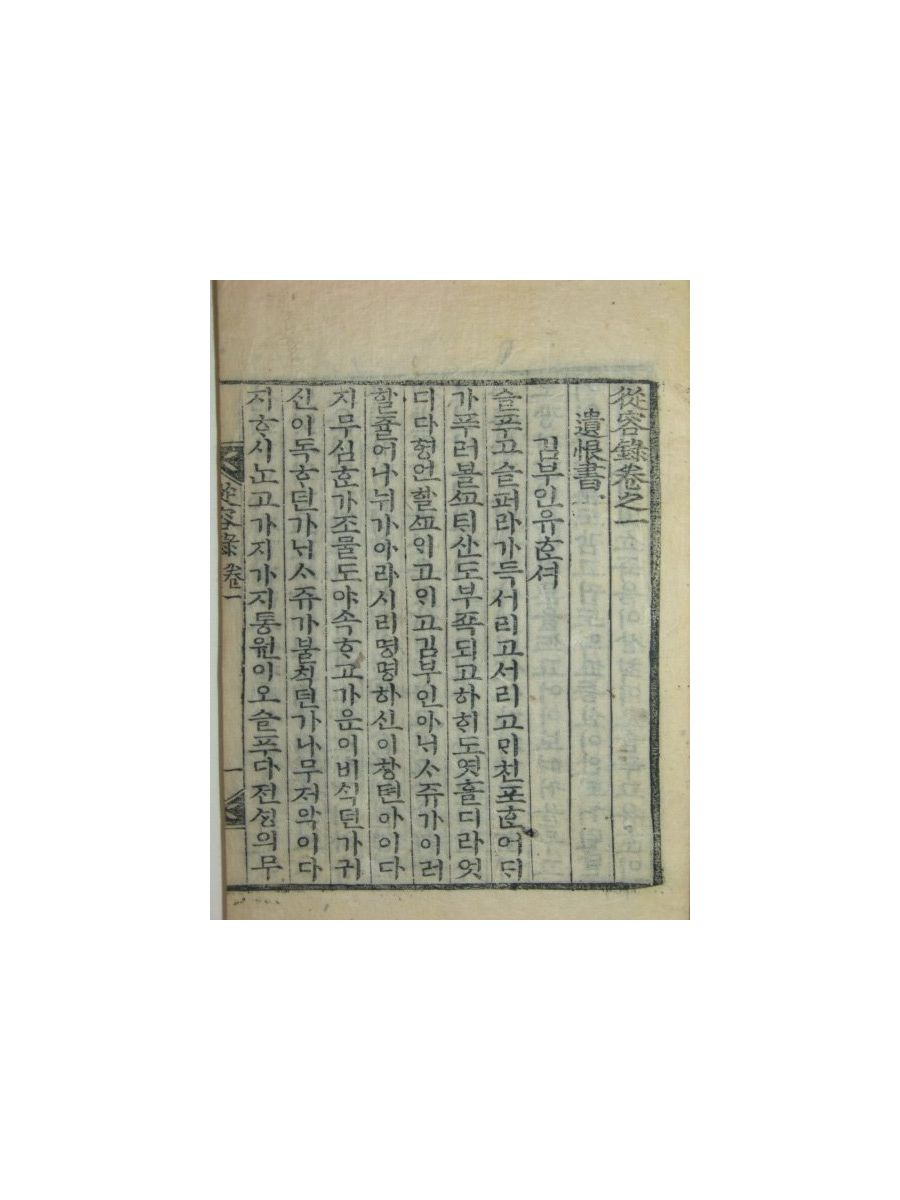 從容錄卷之一
遺恨書
김부인유ᄒᆞᆫ셔
슬푸고슬퍼라가득서리고서리고ᄆᆡ친포ᄒᆞᆫ어ᄃᆡ
가푸러볼ᄭᅩ틔산도부쪽되고하ᄒᆡ도엿흘디라엇
디다형언할ᄭᅩᄋᆡ고ᄋᆡ고김부인아ᄂᆡᄉᆞ쥬가이러
할쥴어나뉘가아라시리명명하신이창텬아이다
지무심ᄒᆞᆫ가조물도야속ᄒᆞ고가운이비ᄉᆡᆨ던가귀
신이독ᄒᆞ던가ᄂᆡᄉᆞ쥬가불칙던가나무저악이다
지ᄒᆞ시ᄂᆞᆫ고가지가지통원이오슬푸다전ᄉᆡᆼ의무
從容錄 卷一 一